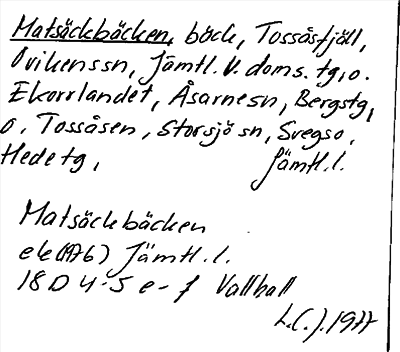 Matsäckbäcken, bäck, Tossåsfjäll,
Ovikenssn, Jämtl. V. doms. tg, o.
Ekorrlandet, Åsarnesn, Bergstg,
o. Tossåsen, Storsjö sn, Svegs o.
Hede tg, Jämtl. l.
Matsäckbäcken
ek (1976) Jämtl. l.
18 D 4-5 e-f Vallhall
L.C.J. 1977